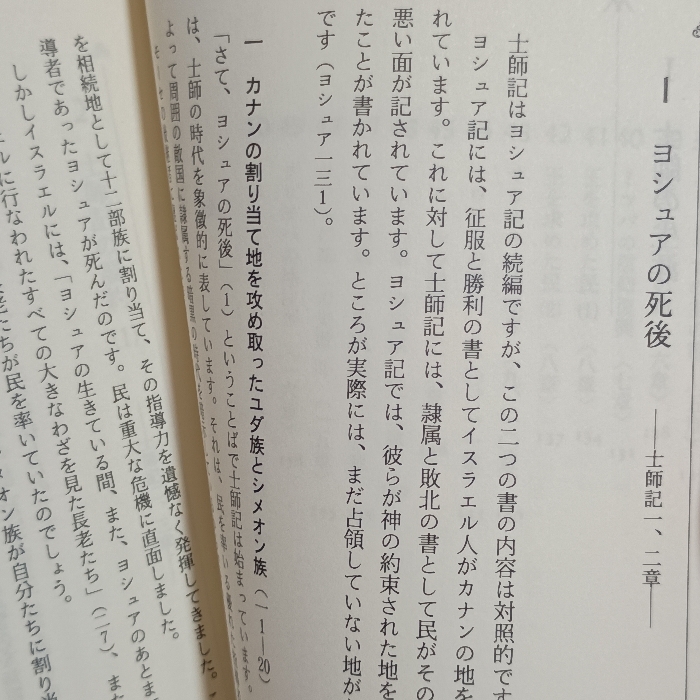 1 ヨシュアの死後
――士師記一、二章――
士師記はヨシュア記の続編ですが、この二つの書の内容は対照的です
ヨシュア記には、征服と勝利の書としてイスラエル人がカナンの地を
れています。これに対して士師記には、隷属と敗北の書として民がその
悪い面が記されています。ヨシュア記では、彼らが神の約束された地を
たことが書かれています。ところが実際には、まだ占領していない地が
です（ヨシュア一三1）。
一 カナンの割り当て地を攻め取ったユダ族とシメオン族（一1―20）
「さて、ヨシュアの死後」（1）ということばで士師記は始まっています。
は、士師の時代を象徴的に表しています。それは、民を率いる
よって周囲の敵国に隷属する暗黒の
を相続地として十二部族に割り当て、その指導力を遺憾なく発揮してきました。
導者であったヨシュアが死んだのです。民は重大な危機に直面しました。
しかしイスラエルには、「ヨシュアの生きている間、また、ヨシュアのあとま
エルに行なわれたすべての大きなわざを見た長老たち」（二7）、また
たちが民を率いていたのでしょう。
メオン族が自分たちに割り当